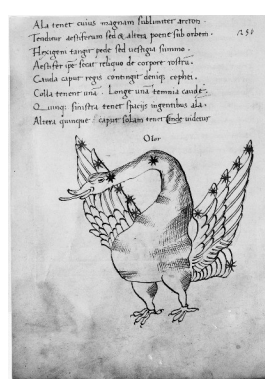 ALa tenet cuius magnam sublimiter arcton.
Tenditur aestiferum sed & altera poene sub orbem.
Flexigeni tangit pede sed uestigia summo.
Aestifer ipse secat reliquo de corpore rostru.
Cauda caput regis contingit deniq; cephei.
Colla tenent una. Longe una temnia caude.
Quinq; sinistra tenet spacijs ingentibus ala.
Altera quinque. caput solam tenet unde uidetur
Olor